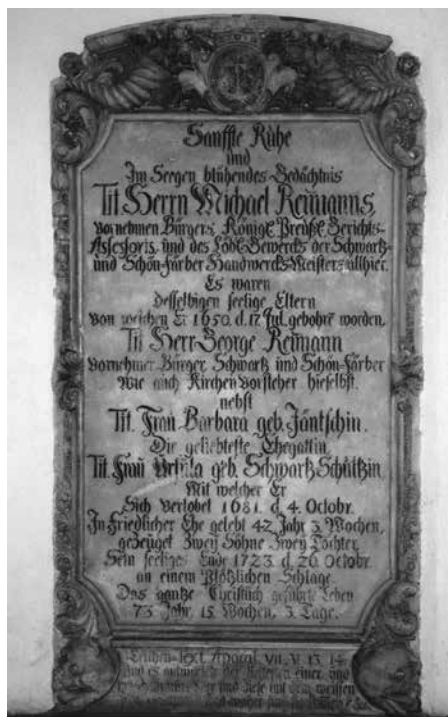 Sanffte Ruhe
und
Im Seegen blühendes Gedächtnis
Tit. Herrn Michael Reimanns,
vornehmen Bürgers, Königl. Preüßl. Gerichts-
Assessoris, und des Löbl. Gewercks der Schwartz-
und Schön-Färber Handwercks Meisters allhier.
Es waren
desselbigen seelige Eltern
von welchen Er 1650. d. 17. Jul. gebohrē worden,
Tit. Herr George Reimann
vornehmer Bürger Schwartz und Schön-Färber
Wie auch Kirchen Vorsteher hieselbst.
nebst
Tit. Frau Barbara geb. Jäntschin.
Die geliebteste Ehegattin
Tit. Frau Ursula geb. Schwartz Schültzin
Mit welcher Er
Sich verlobet 1681. d. 4. Octobr.
In Friedlicher Ehe gelebt 42 Jahr 3 Wochen,
gezeuget Zwey Söhne Zwey Töchter
Sein seeliges Ende 1723. d. 26 Octobr.
an einem Plötzlichen Schlage
Das gantze Christlich geführte Leben
73 Jahr. 15 Wochen, 3 Tage.
Leichen-Text Apocal. VII. V. 13. 14.
Und es antwortet der Eltesten einer und
diese mit dem weissen